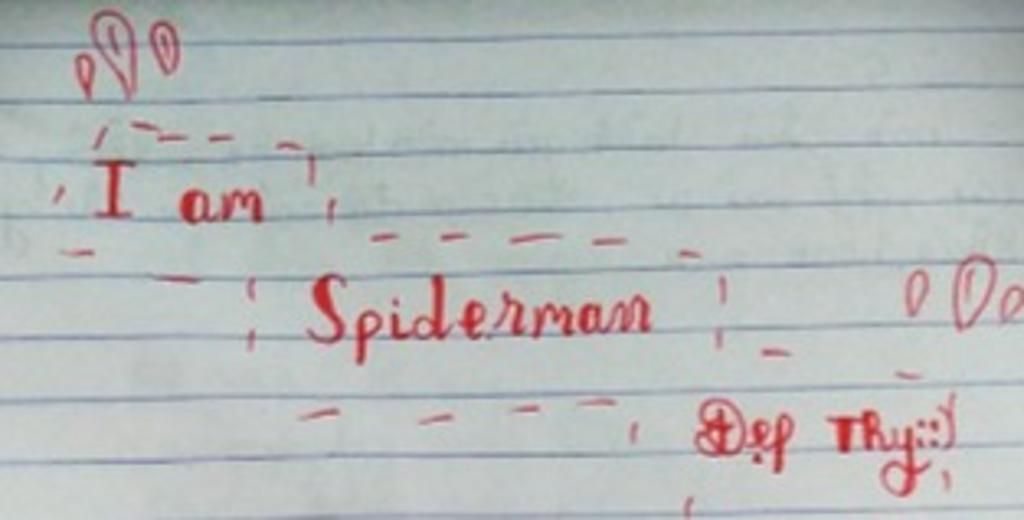 I am
Spiderman
Đẹp Thy::)